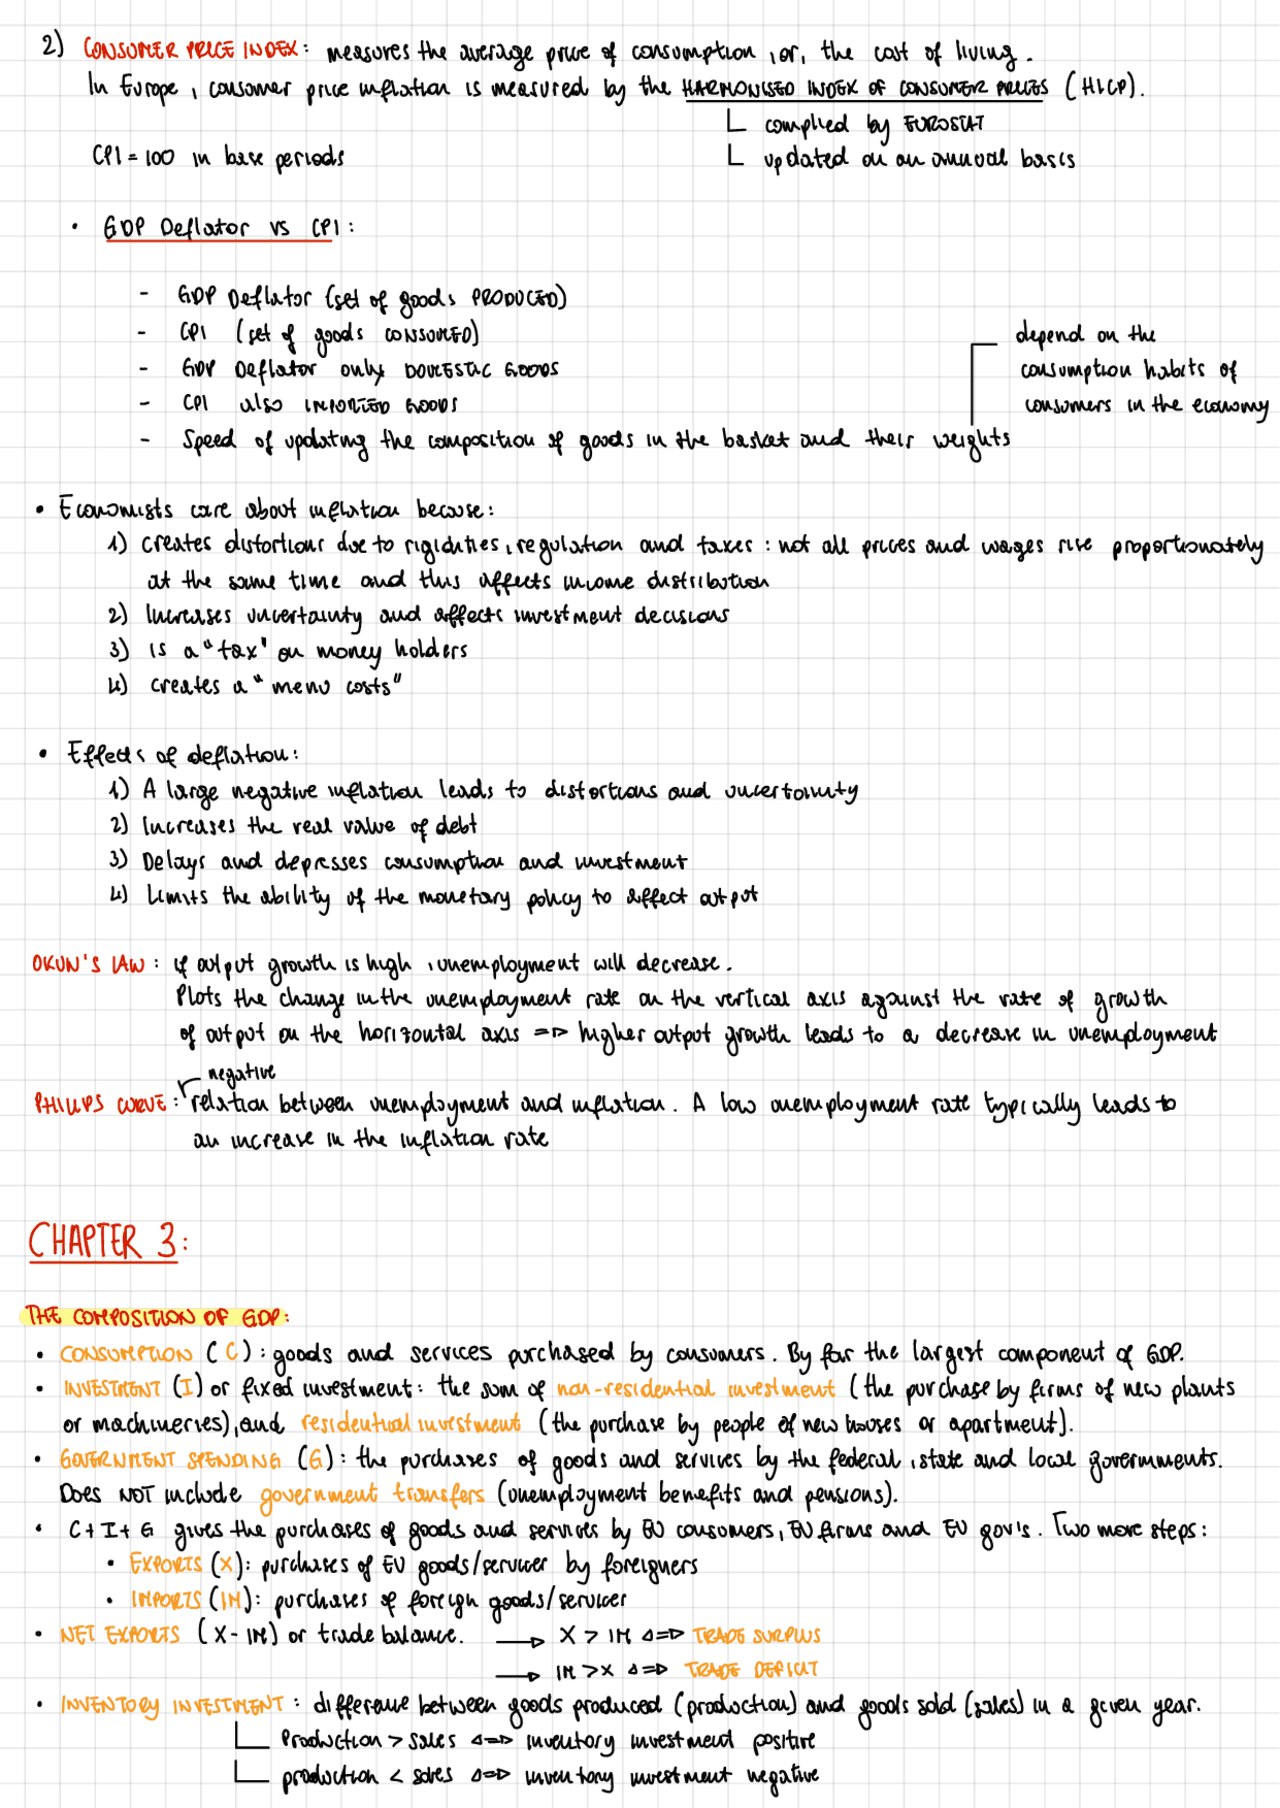 2) CONSUMER PRICE INDEX: measures the average price of consumption, or, the cost of living.
In Europe, consumer price inflation is measured by the HARMONISED INDEX OF CONSUMER PRICES (HICP).
complied by EUROSTAT
CPI = 100 in base periods
updated on an annual basis
• GDP Deflator vs CPI:
- GDP Deflator (set of goods PRODUCED)
- CPI (set of goods CONSUMED)
depend on the
- GDP Deflator only DOMESTIC GOODS
consumption habits of
- CPI also IMPORTED GOODS
consumers in the economy
- Speed of updating the composition of goods in the basket and their weights
• Economists care about inflation because:
1) Creates distortions due to rigidities, regulation and taxes: not all prices and wages rise proportionately
at the same time and this affects income distribution
2) Increases uncertainty and affects investment decisions
3) Is a "tax" on money holders
4) Creates a "menu costs"
• Effects of deflation:
1) A large negative inflation leads to distortions and uncertainity
2) Increases the real value of debt
3) Delays and depresses consumption and investment
4) Limits the ability of the monetary policy to affect output
OKUN'S LAW: if output growth is high, unemployment will decrease.
Plots the change in the unemployment rate on the vertical axis against the rate of growth
of output on the horizontal axis => higher output growth leads to a decrease in unemployment
negative
PHILIPS CURVE: relation between unemployment and inflation. A low unemployment rate typically leads to
an increase in the inflation rate
CHAPTER 3:
THE COMPOSITION OF GDP:
• CONSUMPTION (C): goods and services purchased by consumers. By far the largest component of GDP.
• INVESTMENT (I) or fixed investment: the sum of non-residential investment (the purchase by firms of new plants
or machineries), and residential investment (the purchase by people of new houses or apartment).
• GOVERNMENT SPENDING (G): the purchases of goods and services by the federal, state and local governments.
Does NOT include government transfers (unemployment benefits and pensions).
• C+I+G gives the purchases of goods and services by EU consumers, EU firms and EU gov's. Two more steps:
• EXPORTS (X): purchases of EU goods/services by foreigners
• IMPORTS (IM): purchases of foreign goods/services
• NET EXPORTS (X-IM) or trade balance. → X > IM <=> TRADE SURPLUS
→ IM > X <=> TRADE DEFICIT
• INVENTORY INVESTMENT: difference between goods produced (production) and goods sold (sales) in a given year.
Production > sales <=> inventory investment positive
production < sales <=> inventory investment negative